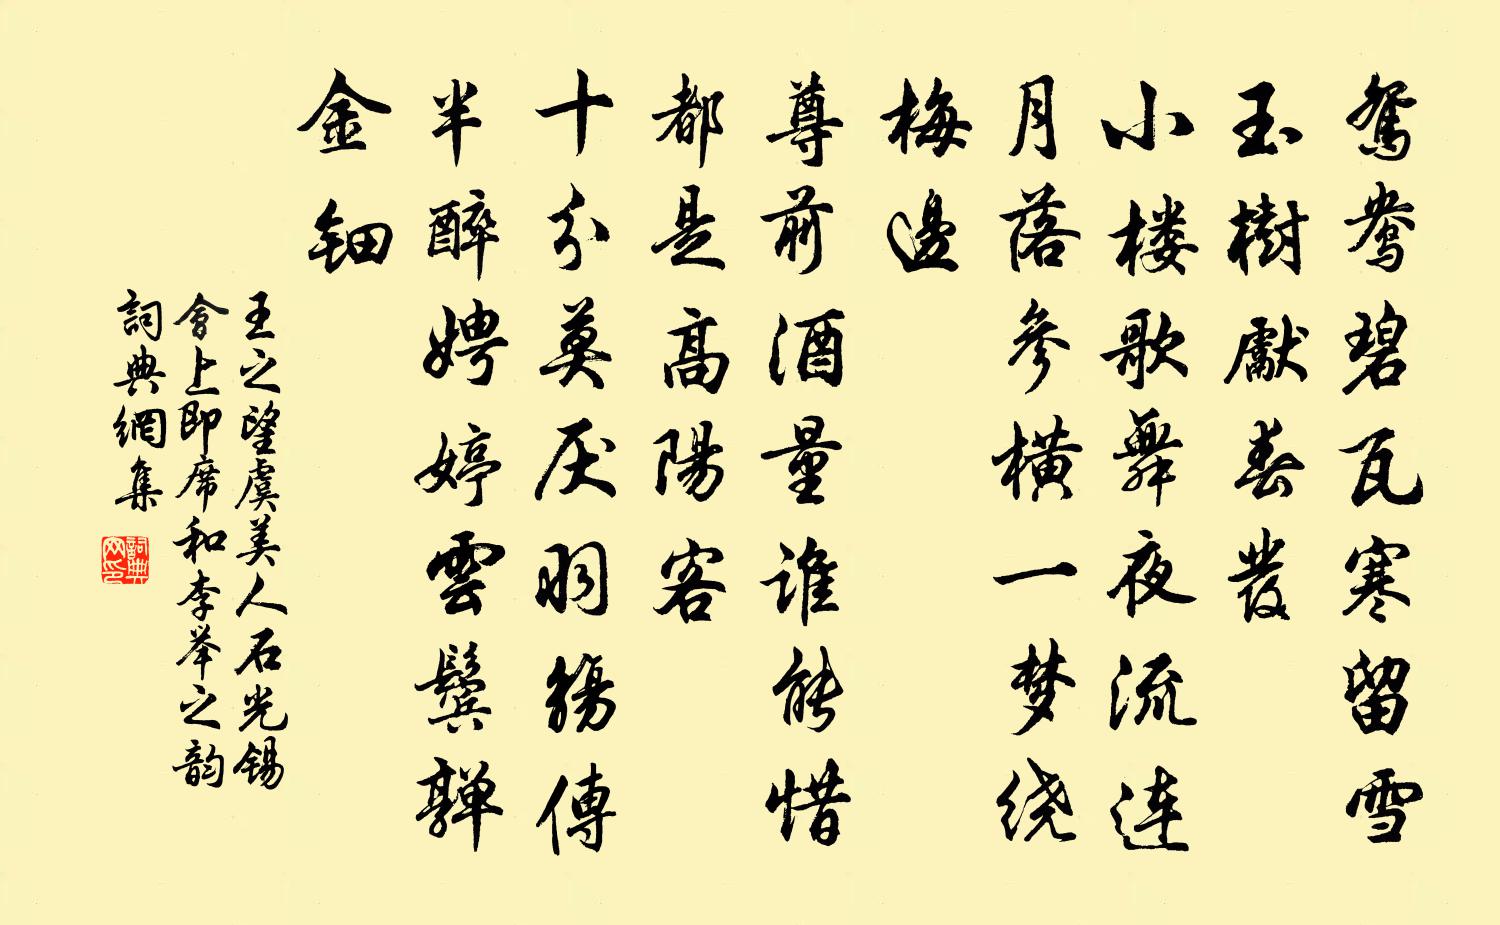 鴛鴦碧瓦寒留雪
玉樹獻春發
小楼歌舞夜流連
月落參橫一梦绕
梅邊
尊前酒量谁能惜
都是高陽客
十分莫厌羽觴傳
半醉娉婷雲鬓嚲
金钿
王之望虞美人石光锡
會上即席和李举之韵
詞典網集
詞典网印